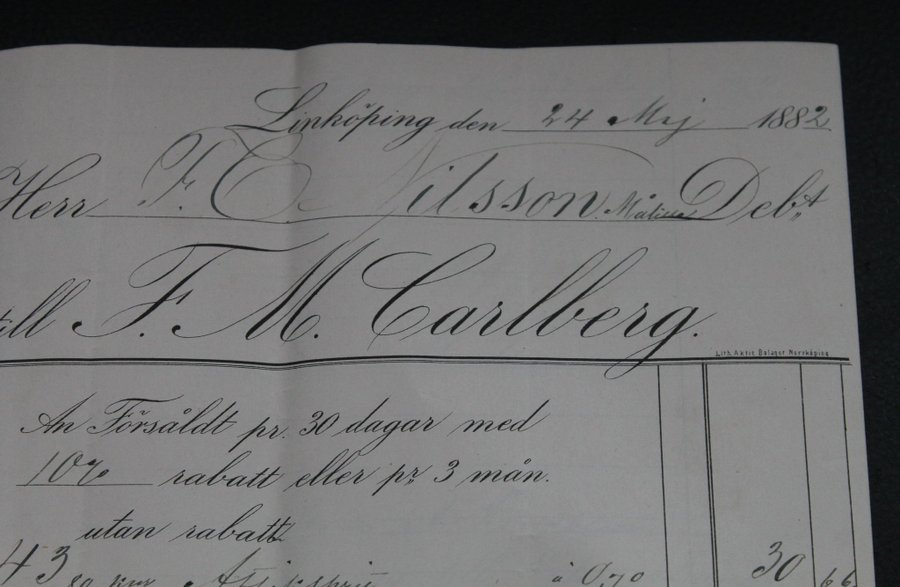 Linköping den 24 Maj 1882
Herr F. C. Nilsson Debt
till F. M. Carlberg.
Lith. Aktie Bolaget Norrköping
An Försåldt pr. 30 dagar med
10% rabatt eller pr. 3 mån.
utan rabatt.
43 à 0,70 30